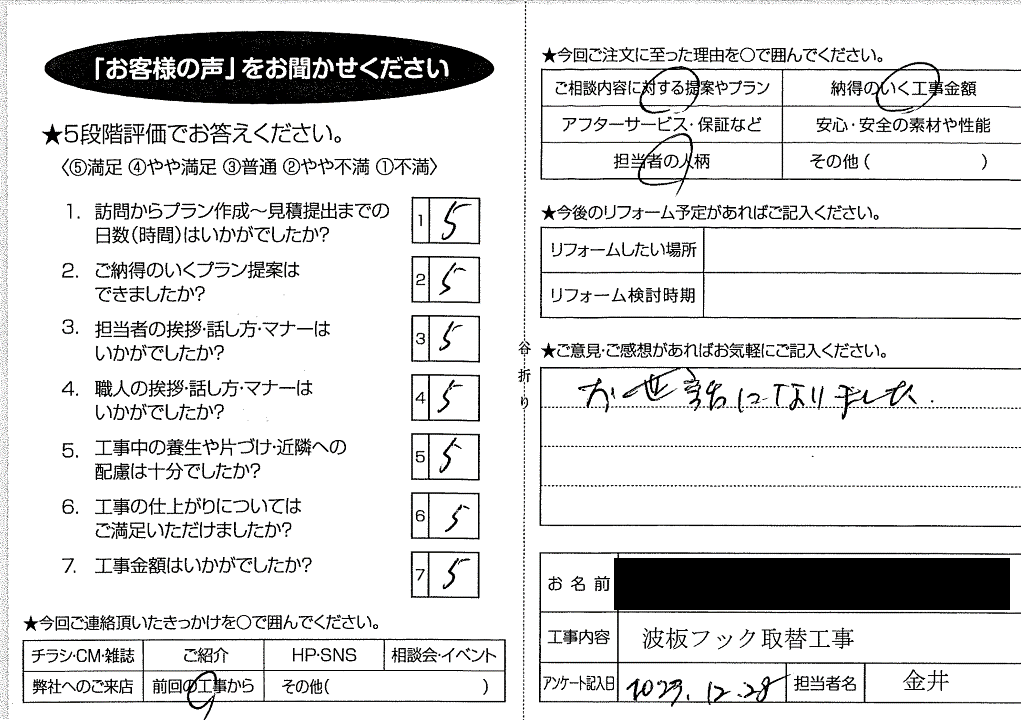 「お客様の声」をお聞かせください
★5段階評価でお答えください。
〈⑤満足 ④やや満足 ③普通 ②やや不満 ①不満〉
1. 訪問からプラン作成～見積提出までの
日数(時間)はいかがでしたか?
1 5
2. ご納得のいくプラン提案は
できましたか?
2 5
3. 担当者の挨拶・話し方・マナーは
いかがでしたか?
3 5
4. 職人の挨拶・話し方・マナーは
いかがでしたか?
4 5
5. 工事中の養生や片づけ・近隣への
配慮は十分でしたか?
5 5
6. 工事の仕上がりについては
ご満足いただけましたか?
6 5
7. 工事金額はいかがでしたか?
7 5
★今回ご連絡頂いたきっかけを○で囲んでください。
チラシ・CM・雑誌 ご紹介 HP・SNS 相談会・イベント
弊社へのご来店 前回の工事から その他( )
谷折り
★今回ご注文に至った理由を○で囲んでください。
ご相談内容に対する提案やプラン 納得のいく工事金額
アフターサービス・保証など 安心・安全の素材や性能
担当者の人柄 その他( )
★今後のリフォーム予定があればご記入ください。
リフォームしたい場所
リフォーム検討時期
★ご意見・ご感想があればお気軽にご記入ください。
お世話になりました.
お名前
工事内容 波板フック取替工事
アンケート記入日 2023.12.28 担当者名 金井